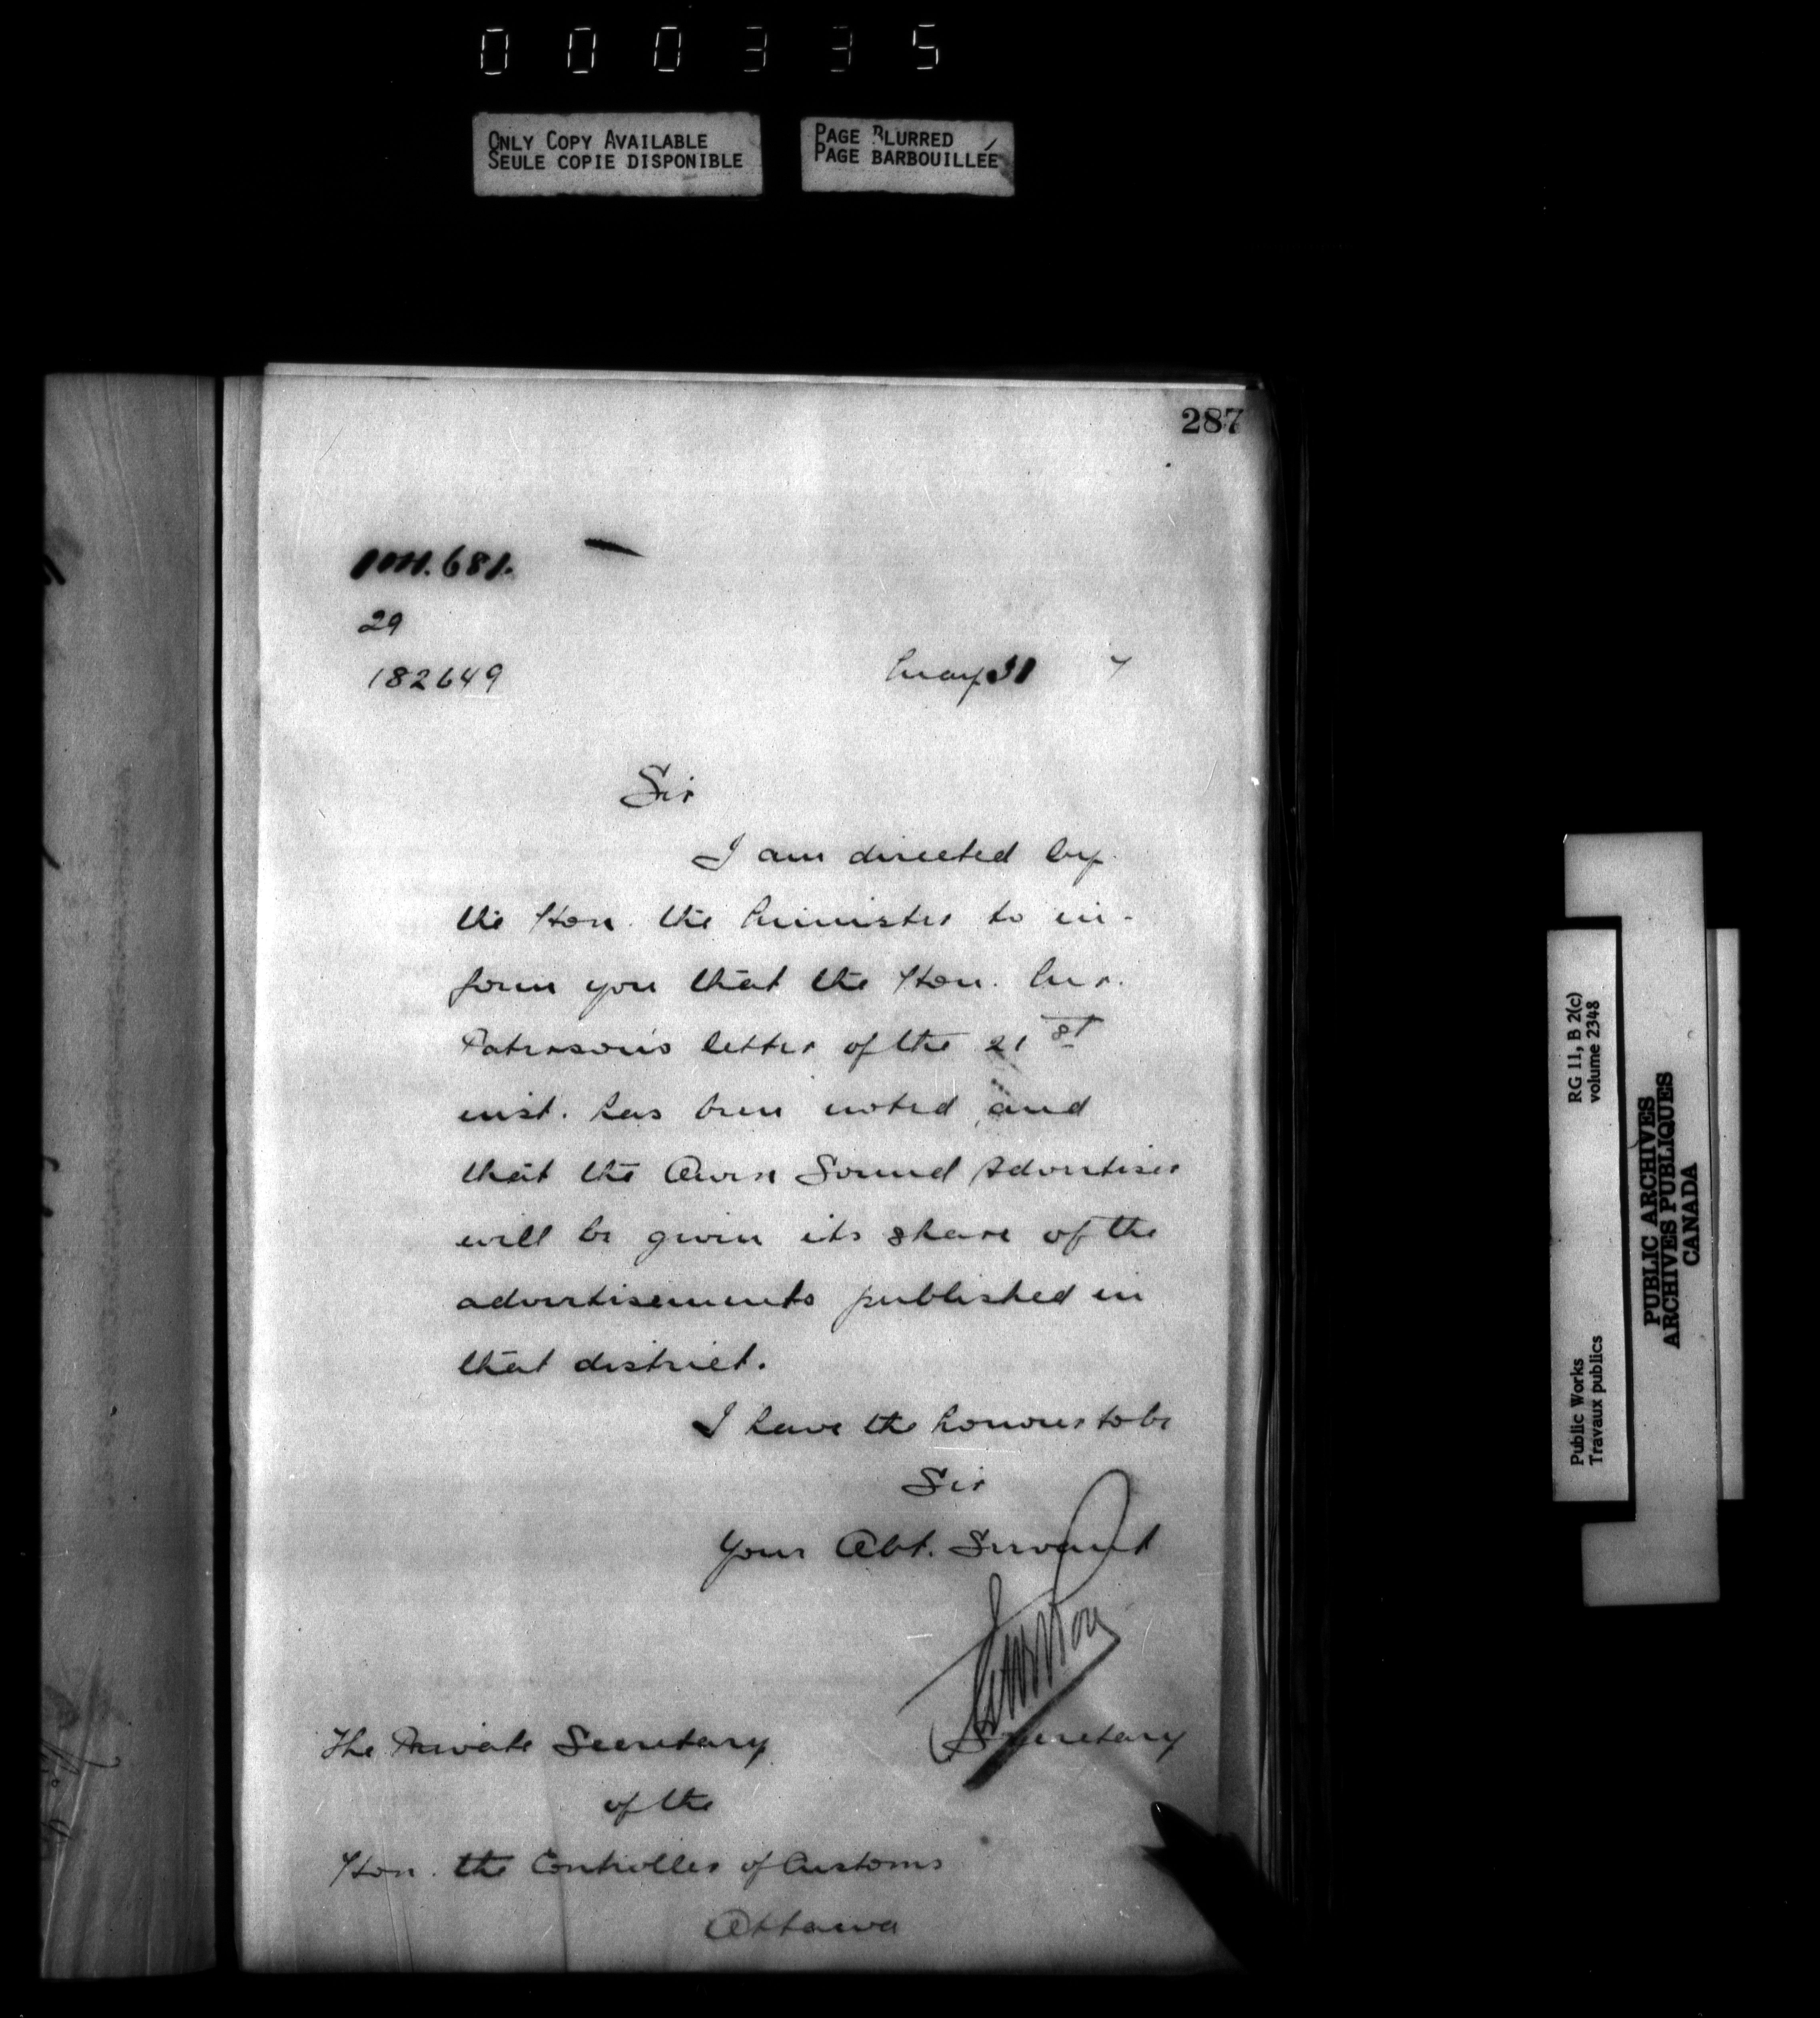 000335
ONLY COPY AVAILABLE
SEULE COPIE DISPONIBLE
PAGE BLURRED
PAGE BARBOUILLÉE
287
681.
29
182649
May 31 7
Sir
I am directed by
the Hon. the Minister to in-
form you that the Hon. Mr.
Paterson's letter of the 21st
inst. has been noted and
that the Owen Sound Advertiser
will be given its share of the
advertisements published in
that district.
I have the honour to be
Sir
Your Obt. Servant
Secretary
The Private Secretary
of the
Hon. the Controller of Customs
Ottawa
RG 11, B 2(c)
volume 2348
Public Works
Travaux publics
PUBLIC ARCHIVES
ARCHIVES PUBLIQUES
CANADA